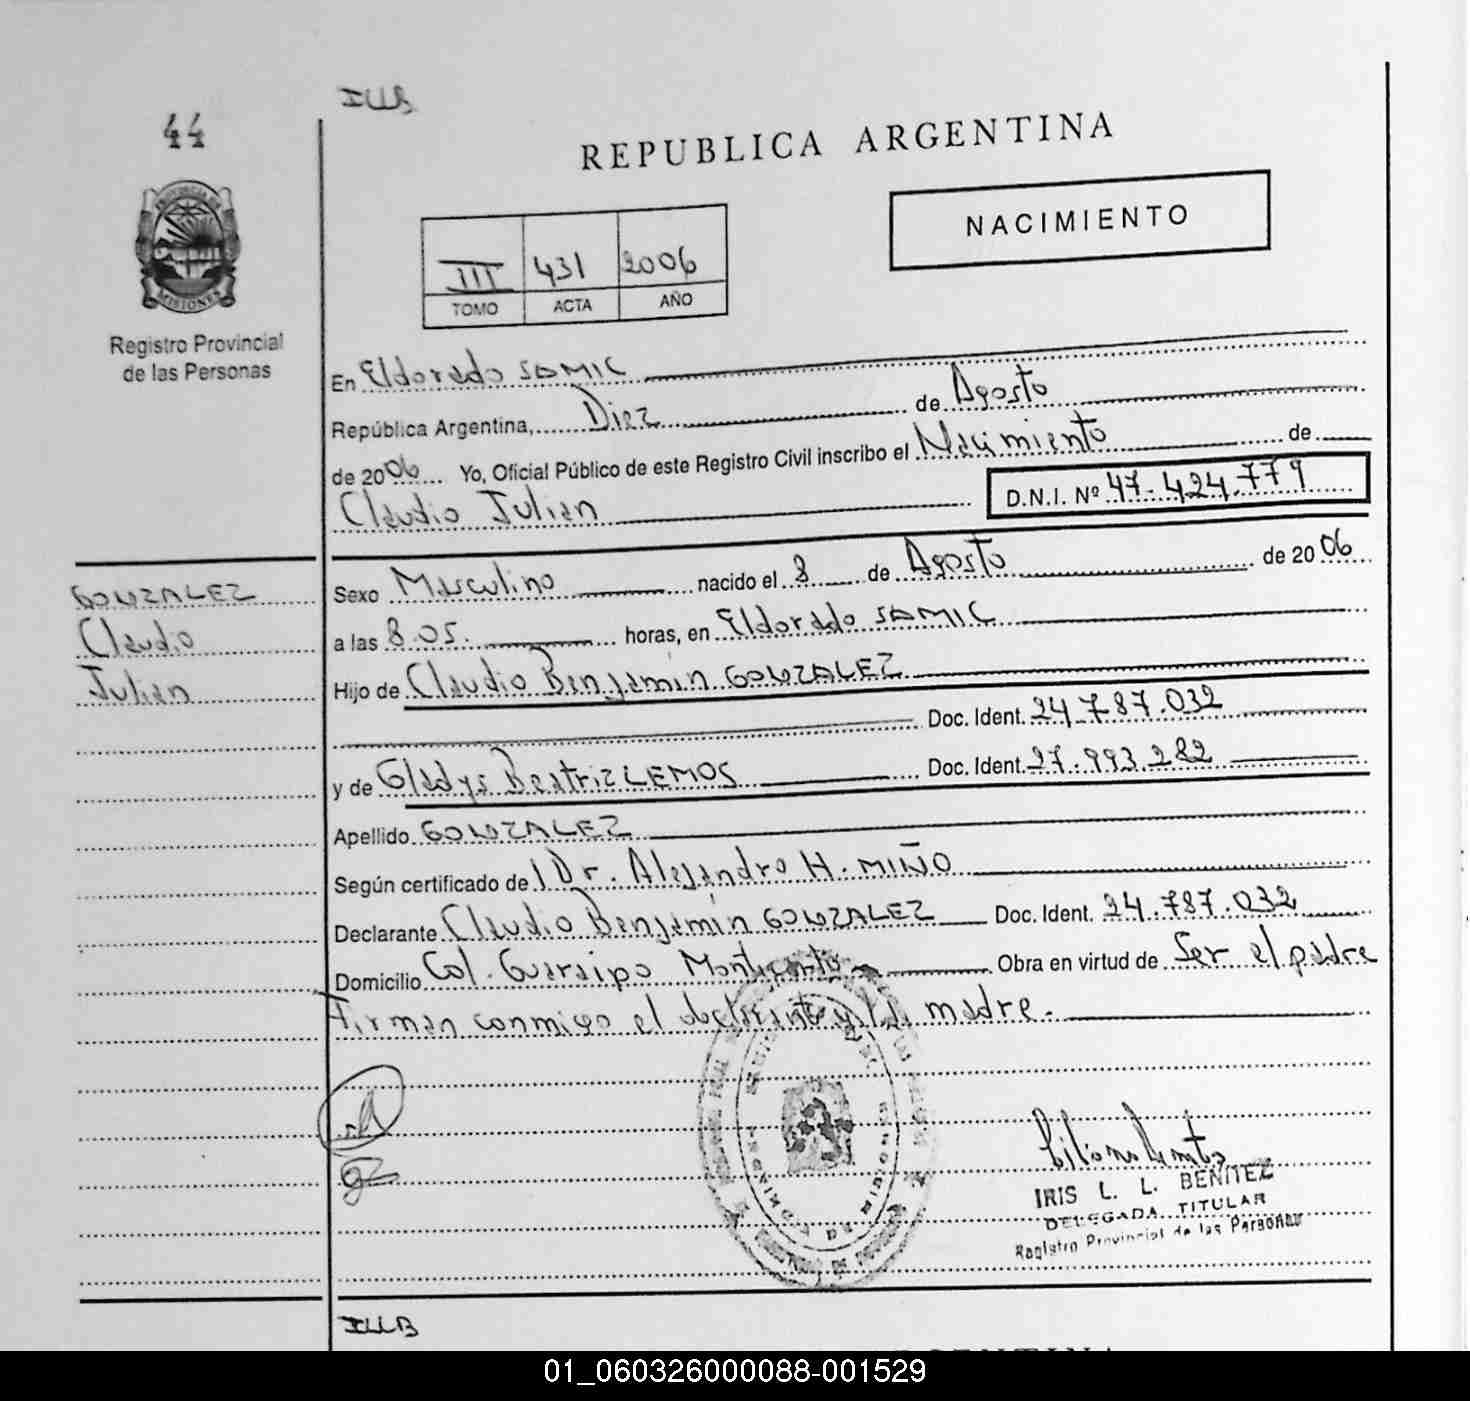 ILLB
44
REPUBLICA ARGENTINA
NACIMIENTO
PROVINCIA DE
MISIONES
III 431 2006
TOMO ACTA AÑO
Registro Provincial
de las Personas
En Eldorado SAMIC
República Argentina, Diez de Agosto
de 2006 Yo, Oficial Público de este Registro Civil inscribo el Nacimiento de
Claudio Julian D.N.I. Nº 47.424.779
GONZALEZ
Claudio
Julian
Sexo Masculino nacido el 8 de Agosto de 2006
a las 8.05. horas, en Eldorado SAMIC
Hijo de Claudio Benjamin GONZALEZ
Doc. Ident. 24.787.032
y de Gladys Beatriz LEMOS Doc. Ident. 27.993.282
Apellido GONZALEZ
Según certificado del Dr. Alejandro H. MIÑO
Declarante Claudio Benjamin GONZALEZ Doc. Ident. 24.787.032
Domicilio Col. Guaraipo Montecarlo Obra en virtud de Ser el padre
Firman conmigo el declarante y la madre.
IRIS L. L. BENITEZ
DELEGADA TITULAR
Registro Provincial de las Personas
ILLB
01_060326000088-001529